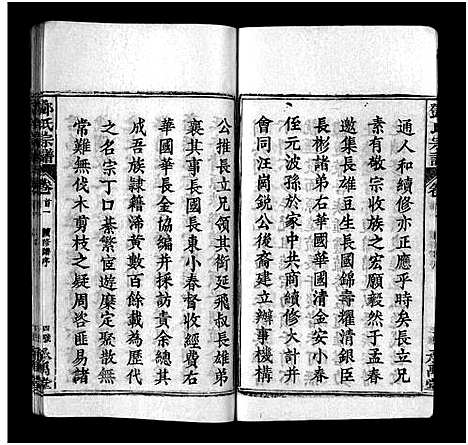 通人和續修亦正應乎時矣長立兄
素有敬宗收族之宏願毅然于孟春
邀集長雄豆生長國錦壽耀清銀臣
長彬諸弟右華國華國清金安小春
侄元波孫於家中共商續修大計并
會同汪崗銳公後裔建立辦事機構
公推長立兄領其銜延飛叔長雄弟
襄其事長國長東小春督收經費右
華國華長金協編并採訪貴余總其
成吾族隸籍浠黃數百餘載代歷年
之名宗丁口綦繁宦遊靡定聚散無
常難無伐木剪枝之疑周咨匪易詢
鄧氏宗譜
卷首一
續修譜序